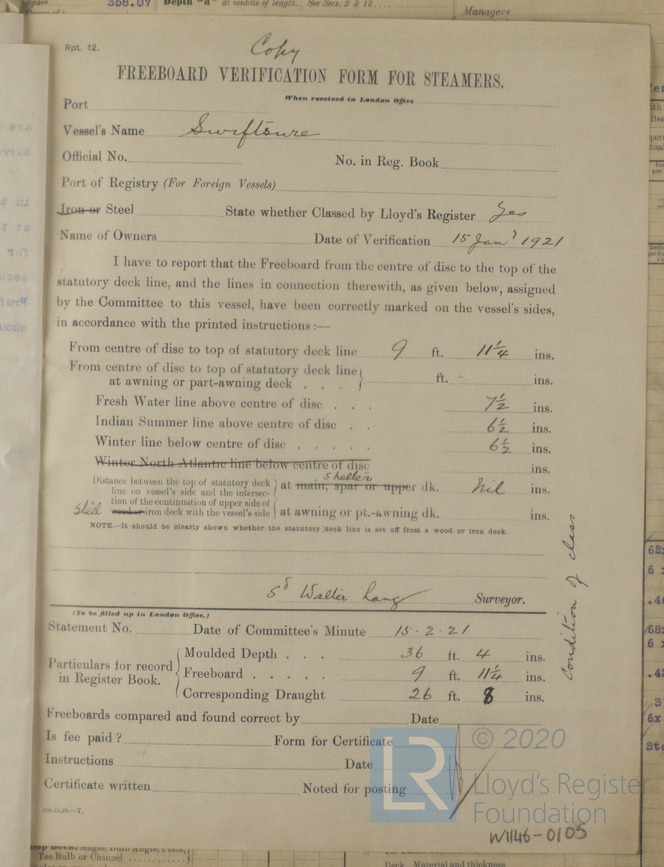 Space 358.07 Depth "d" at middle of length. See Secs. 2 & 13
Managers
Rpt. 12.
Copy
FREEBOARD VERIFICATION FORM FOR STEAMERS.
When received in London Office
Port
Vessel's Name Swiftsure
Official No. No. in Reg. Book
Port of Registry (For Foreign Vessels)
Iron or Steel State whether Classed by Lloyd's Register Yes
Name of Owners Date of Verification 15 Jany 1921
I have to report that the Freeboard from the centre of disc to the top of the
statutory deck line, and the lines in connection therewith, as given below, assigned
by the Committee to this vessel, have been correctly marked on the vessel's sides,
in accordance with the printed instructions:—
From centre of disc to top of statutory deck line 9 ft. 11 1/4 ins.
From centre of disc to top of statutory deck line
at awning or part-awning deck . . . ft. ins.
Fresh Water line above centre of disc . . . 7 1/2 ins.
Indian Summer line above centre of disc . . 6 1/2 ins.
Winter line below centre of disc . . . . . 6 1/2 ins.
Winter North Atlantic line below centre of disc ins.
Distance between the top of statutory deck
line on vessel's side and the intersec-
tion of the continuation of upper side of
Steel wood or iron deck with the vessel's side
shelter
at main, spar or upper dk. Nil ins.
at awning or pt.-awning dk. ins.
NOTE.—It should be clearly shown whether the statutory deck line is set off from a wood or iron deck.
Condition of class
Sd Walter Lang Surveyor.
(To be filled up in London Office.)
Statement No. Date of Committee's Minute 15.2.21
Particulars for record
in Register Book.
Moulded Depth . . 36 ft. 4 ins.
Freeboard . . . . . 9 ft. 11 1/4 ins.
Corresponding Draught 26 ft. 8 ins.
Freeboards compared and found correct by Date
Is fee paid? Form for Certificate
Instructions Date
Certificate written Noted for posting
LR
© 2020
Lloyd's Register
Foundation
W1146-0105
Tee Bulb or Channel
Deck, Material and thickness